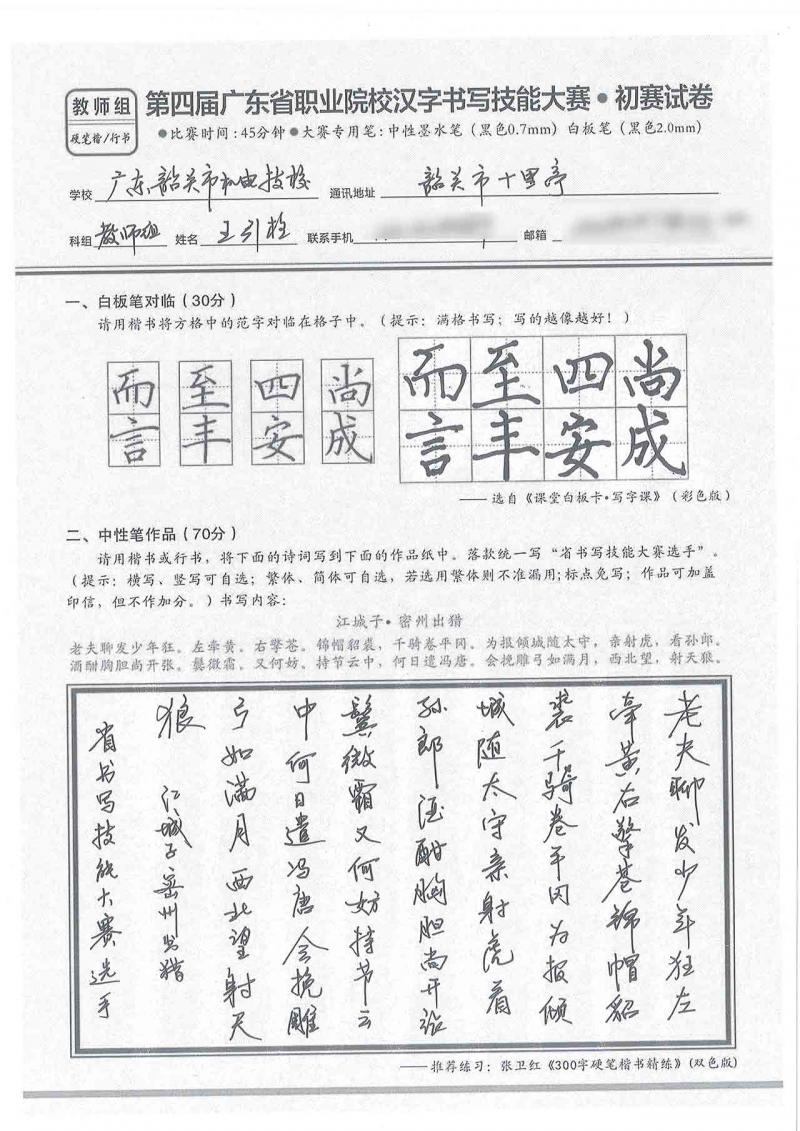 教师组
硬笔楷/行书
第四届广东省职业院校汉字书写技能大赛•初赛试卷
●比赛时间:45分钟●大赛专用笔:中性墨水笔(黑色0.7mm)白板笔(黑色2.0mm)
学校 广东韶关市机电技校 通讯地址 韶关市十里亭
科组 教师组 姓名 王引栓 联系手机 邮箱
一、白板笔对临(30分)
请用楷书将方格中的范字对临在格子中。(提示:满格书写;写的越像越好!)
而至四尚 而至四尚
言丰安成 言丰安成
——选自《课堂白板卡•写字课》(彩色版)
二、中性笔作品(70分)
请用楷书或行书,将下面的诗词写到下面的作品纸中。落款统一写“省书写技能大赛选手”。
(提示:横写、竖写可自选;繁体、简体可自选,若选用繁体则不准漏用;标点免写;作品可加盖
印信,但不作加分。)书写内容:
江城子•密州出猎
老夫聊发少年狂。左牵黄。右擎苍。锦帽貂裘,千骑卷平冈。为报倾城随太守,亲射虎,看孙郎。
酒酣胸胆尚开张。鬓微霜。又何妨。持节云中,何日遣冯唐。会挽雕弓如满月,西北望,射天狼。
老夫聊发少年狂左
牵黄右擎苍锦帽貂
裘千骑卷平冈为报倾
城随太守亲射虎看
孙郎酒酣胸胆尚开张
鬓微霜又何妨持节云
中何日遣冯唐会挽雕
弓如满月西北望射天
狼 江城子密州出猎
省书写技能大赛选手
——推荐练习:张卫红《300字硬笔楷书精练》(双色版)